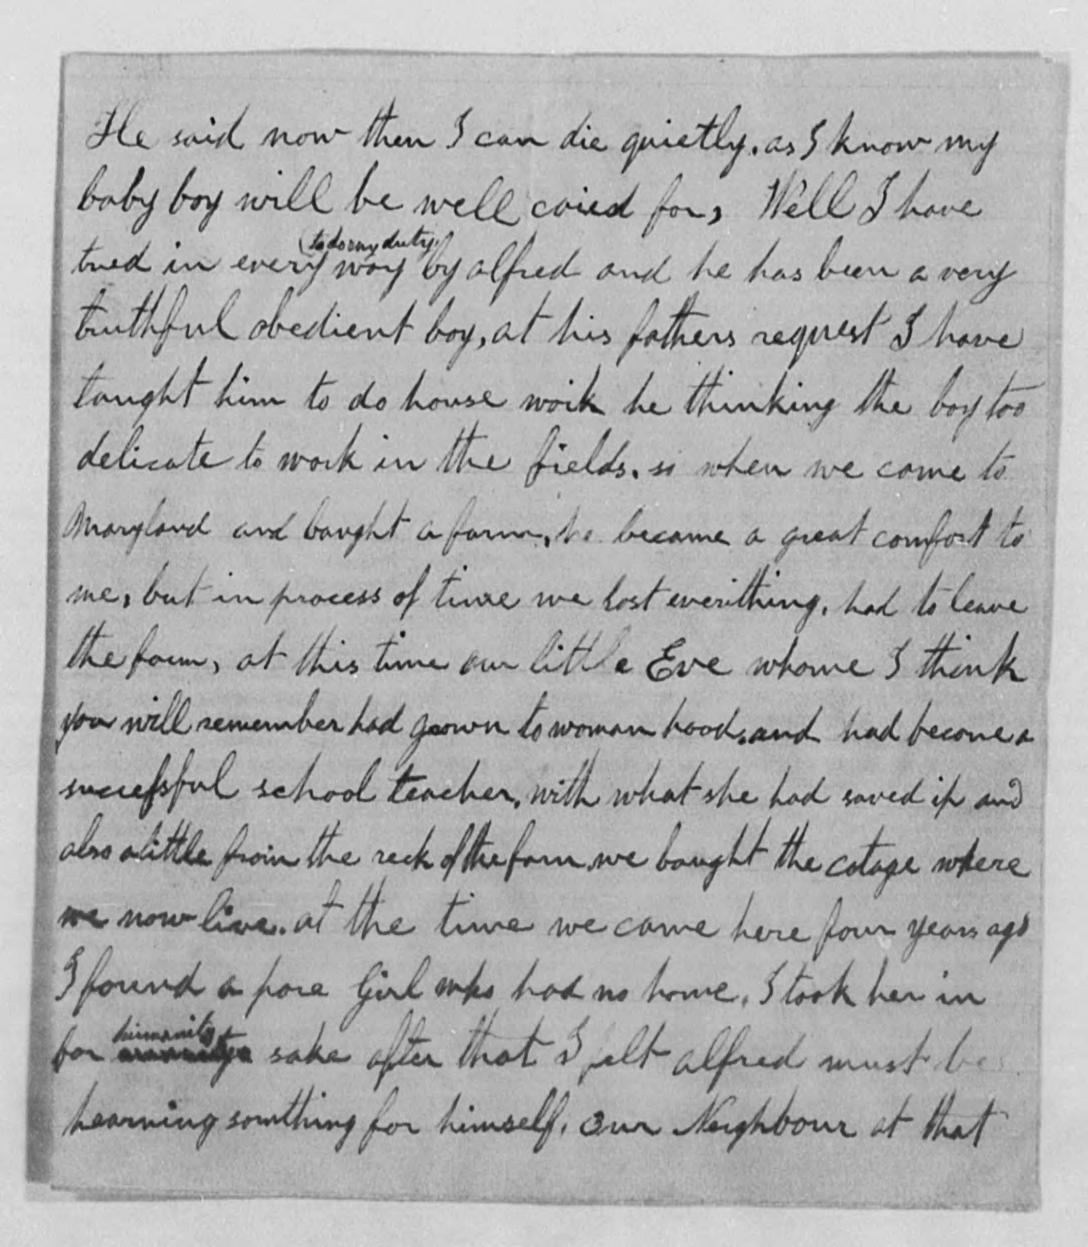 He said now then I can die quietly. as I know my
baby boy will be well caied for, Well I have
(to do my duty)
tried in every way by alfred and he has been a very
truthful obedient boy, at his fathers request I have
taught him to do house work he thinking the boy too
delicate to work in the fields. so when we come to
Maryland and bought a farm, he became a great comfort to
me, but in process of time we lost everithing. had to leave
the farm, at this time our little Eve whome I think
you will remember had grown to woman hood, and had become a
successful school teacher, with what she had saved up and
also alittle from the reck of the farm we bought the cotage where
we now live. at the time we came here four years ago
I found a pore Girl who had no home, I took her in
humanity
for sake after that I felt alfred must be
hearning somthing for himself. Our Neighbour at that